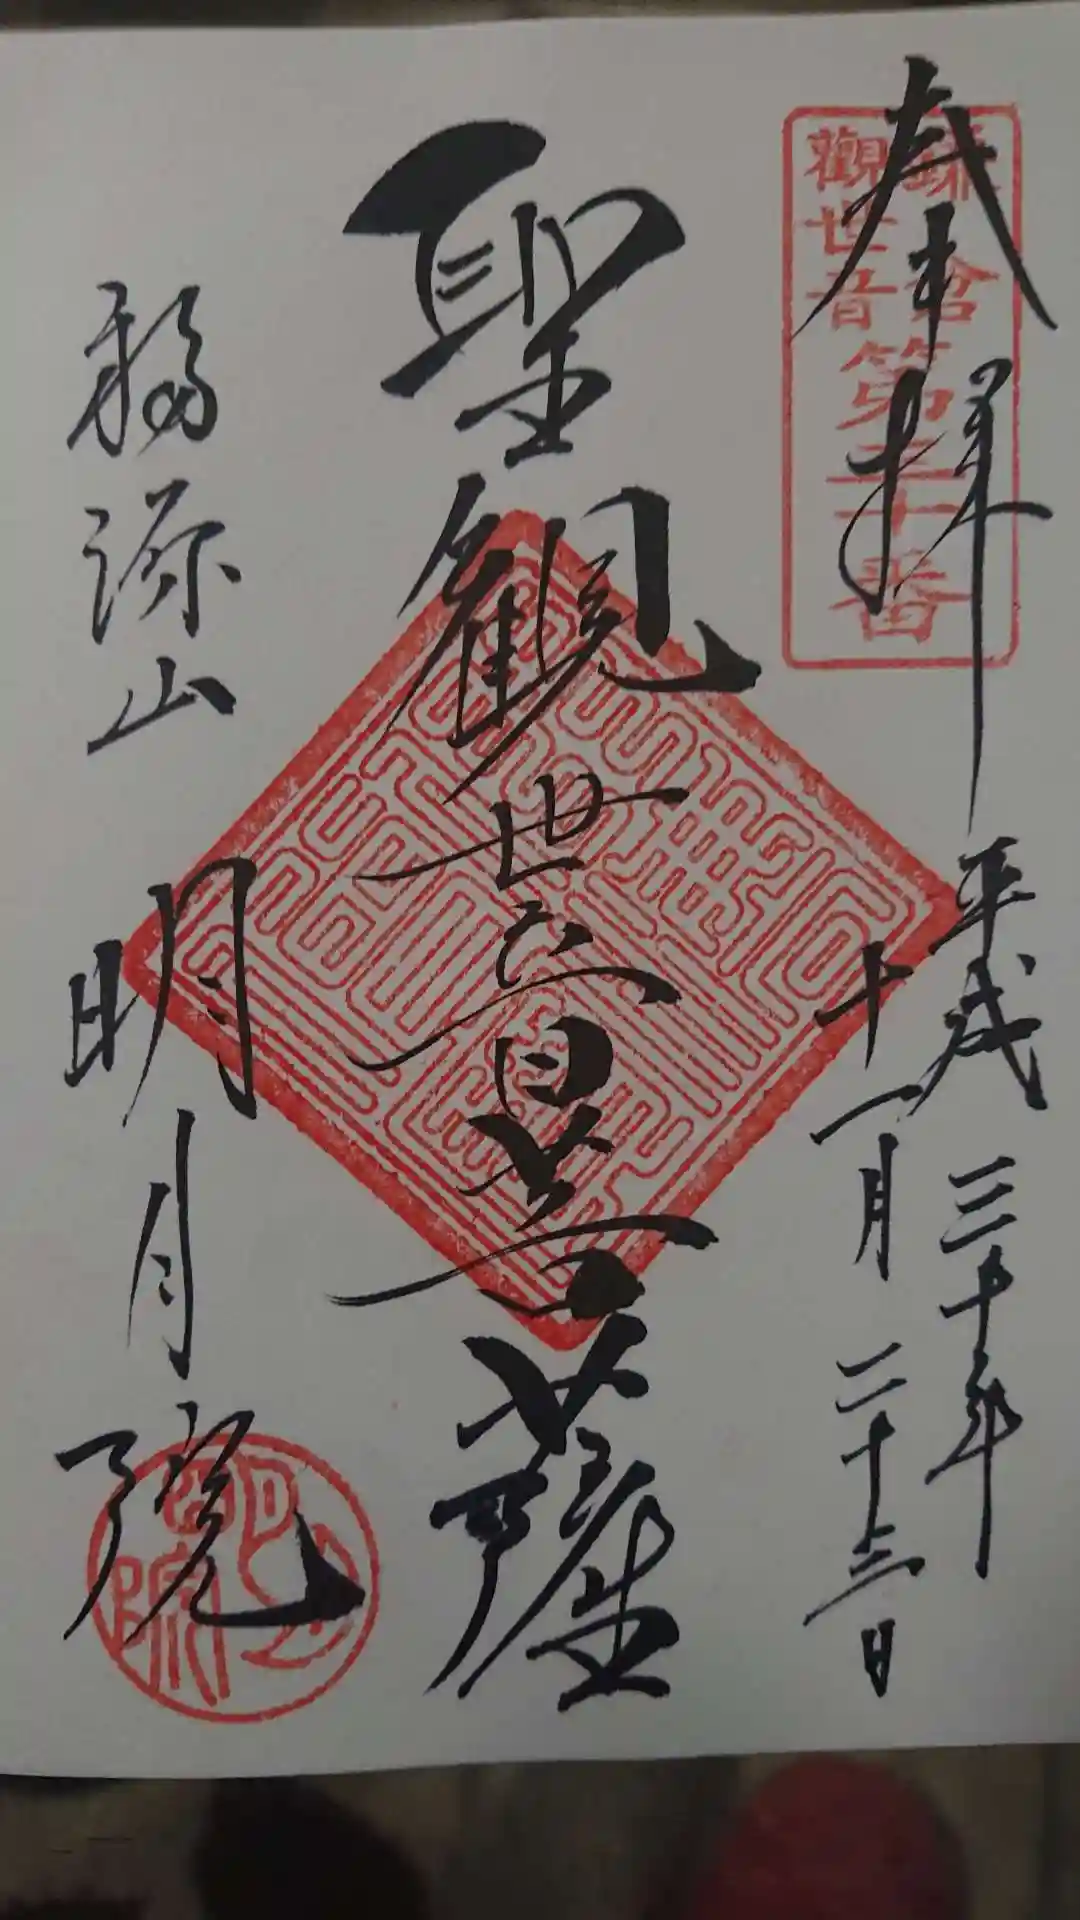 奉拝
鎌倉
觀世音
第三十番
平成三十年
十一月二十三日
聖観世音菩薩
福源山
明月院